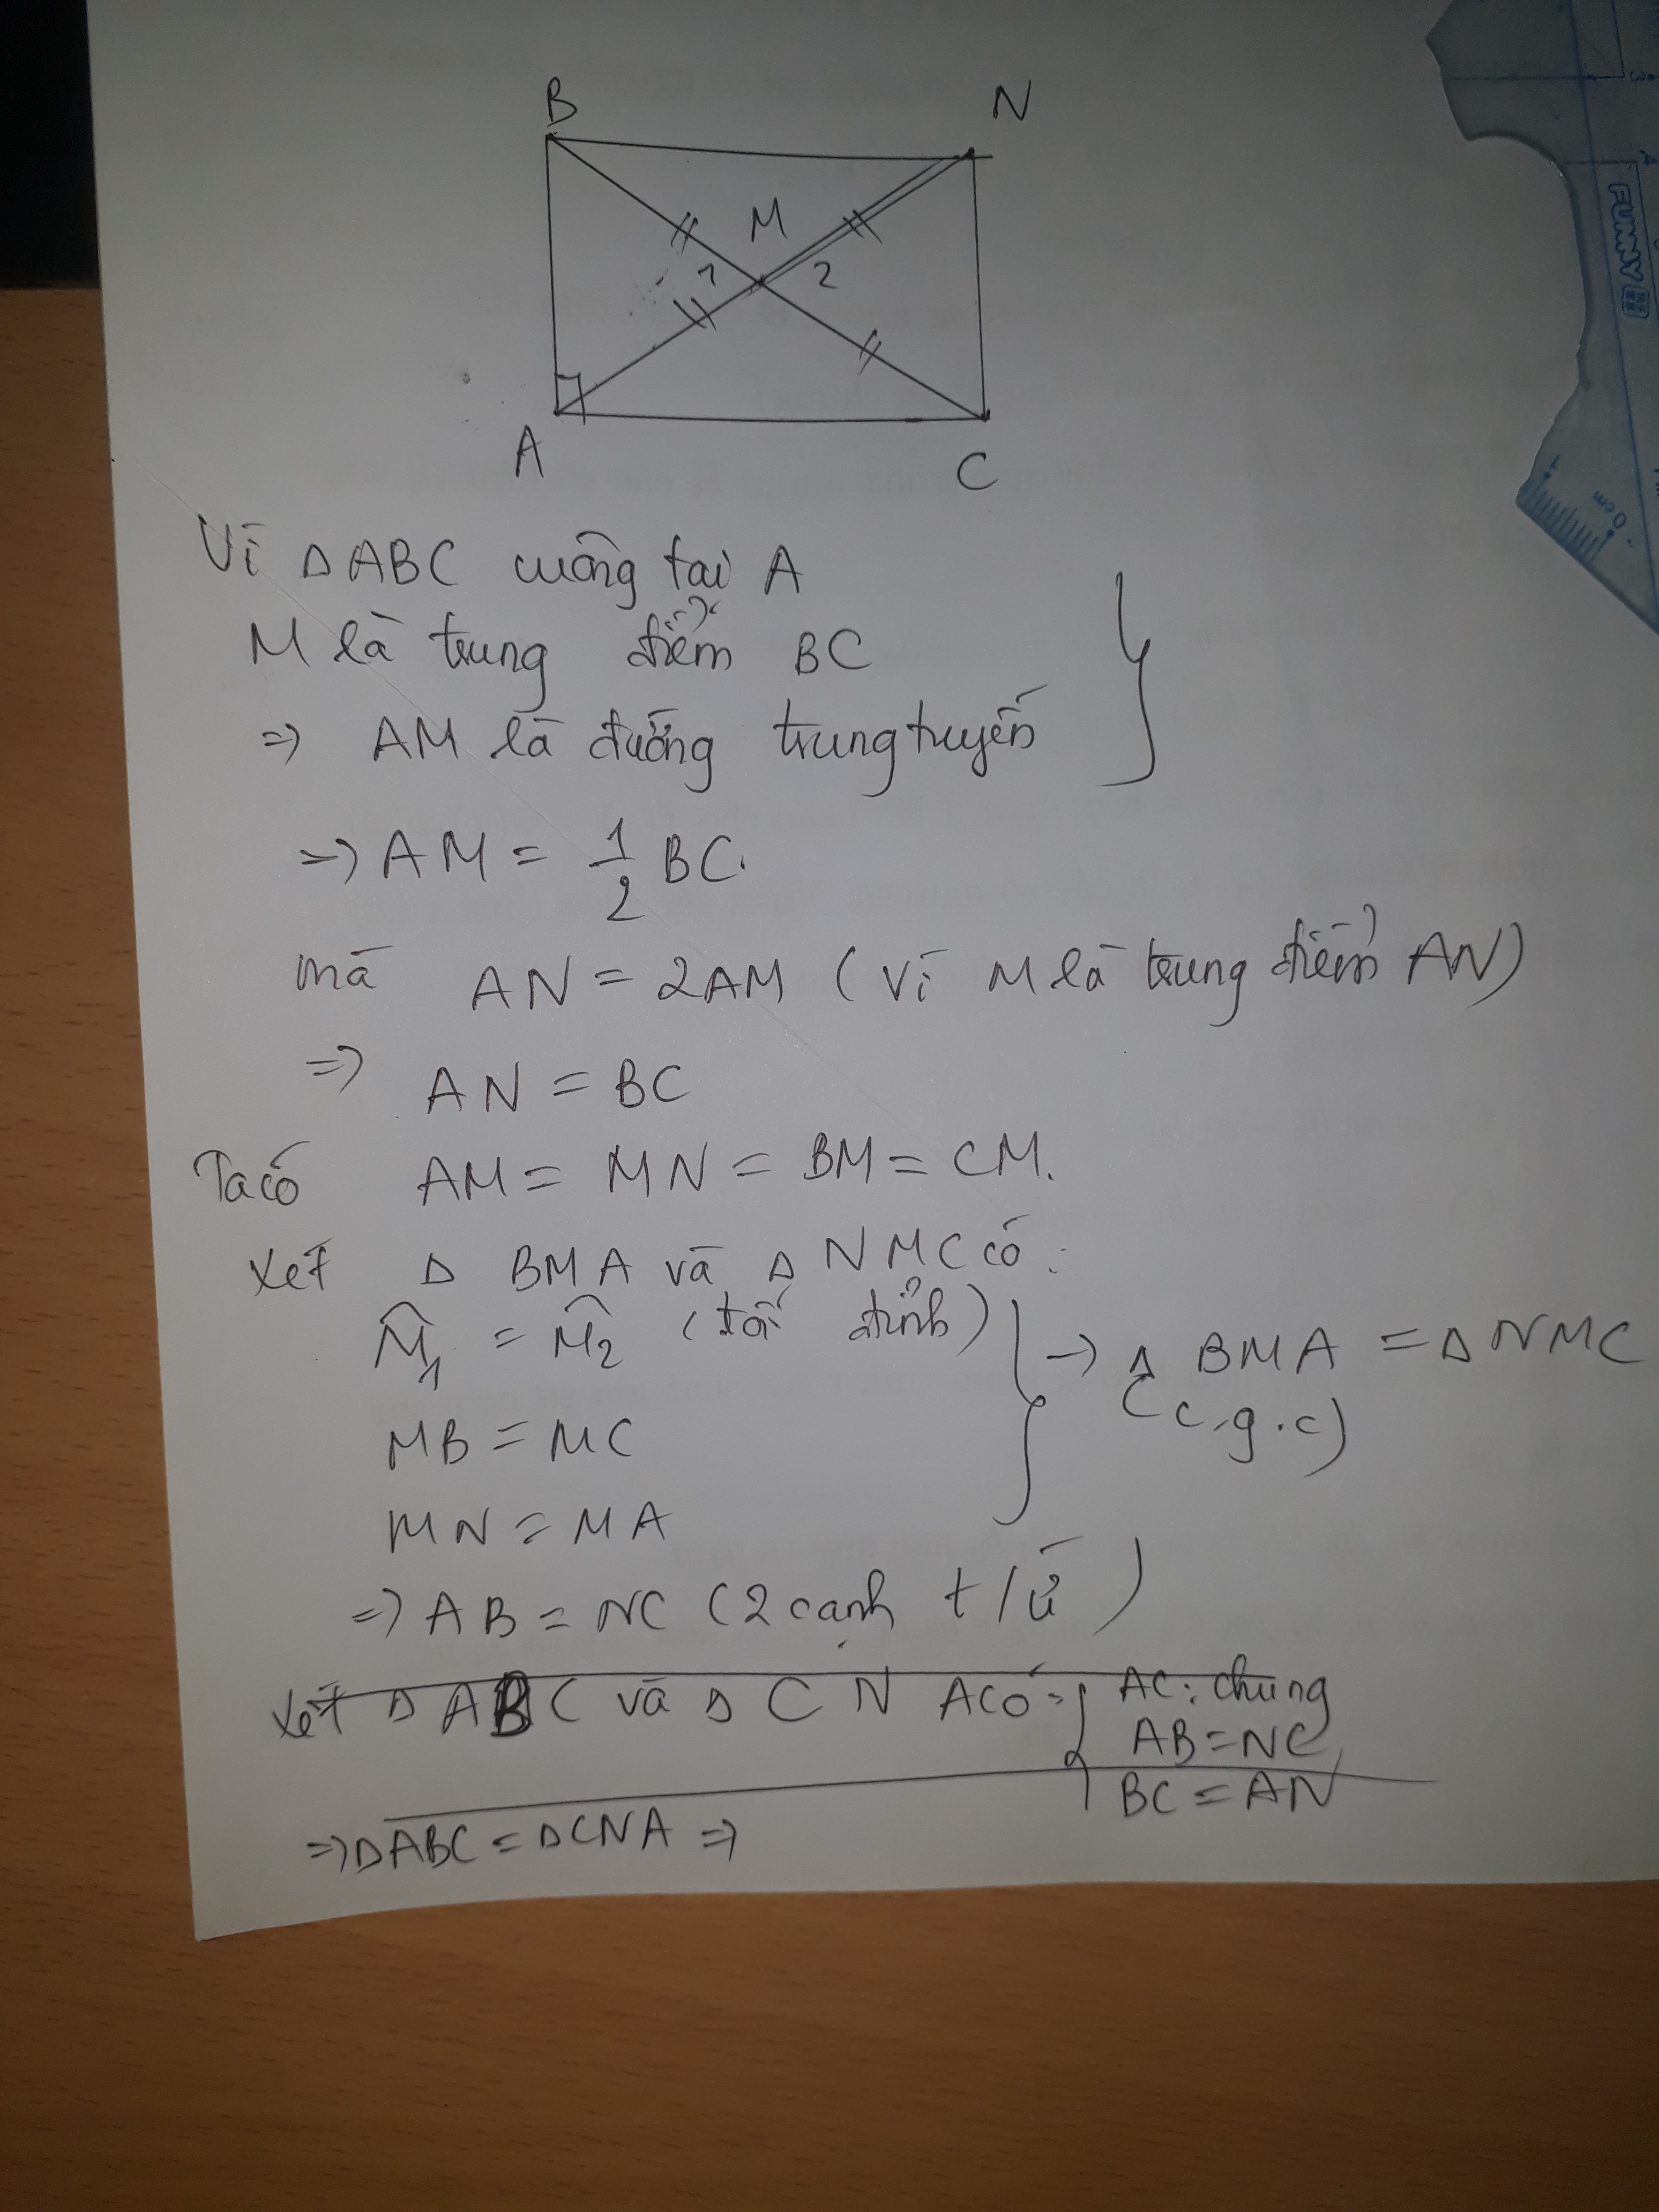 B N
M
1 2
A C
Vì Δ ABC vuông tại A
M là trung điểm BC
=> AM là đường trung tuyến
=> AM = 1/2 BC.
mà AN = 2AM (Vì M là trung điểm AN)
=> AN = BC
Ta có AM = MN = BM = CM.
Xét Δ BMA và Δ NMC có:
M̂1 = M̂2 (đối đỉnh)
MB = MC
MN = MA
-> Δ BMA = Δ NMC
(c.g.c)
=> AB = NC (2 cạnh t/ứ)
Xét Δ ABC và Δ CNA có:
AC: chung
AB = NC
BC = AN
=> Δ ABC = Δ CNA =>
FUNNY
3
4
1
0 cm